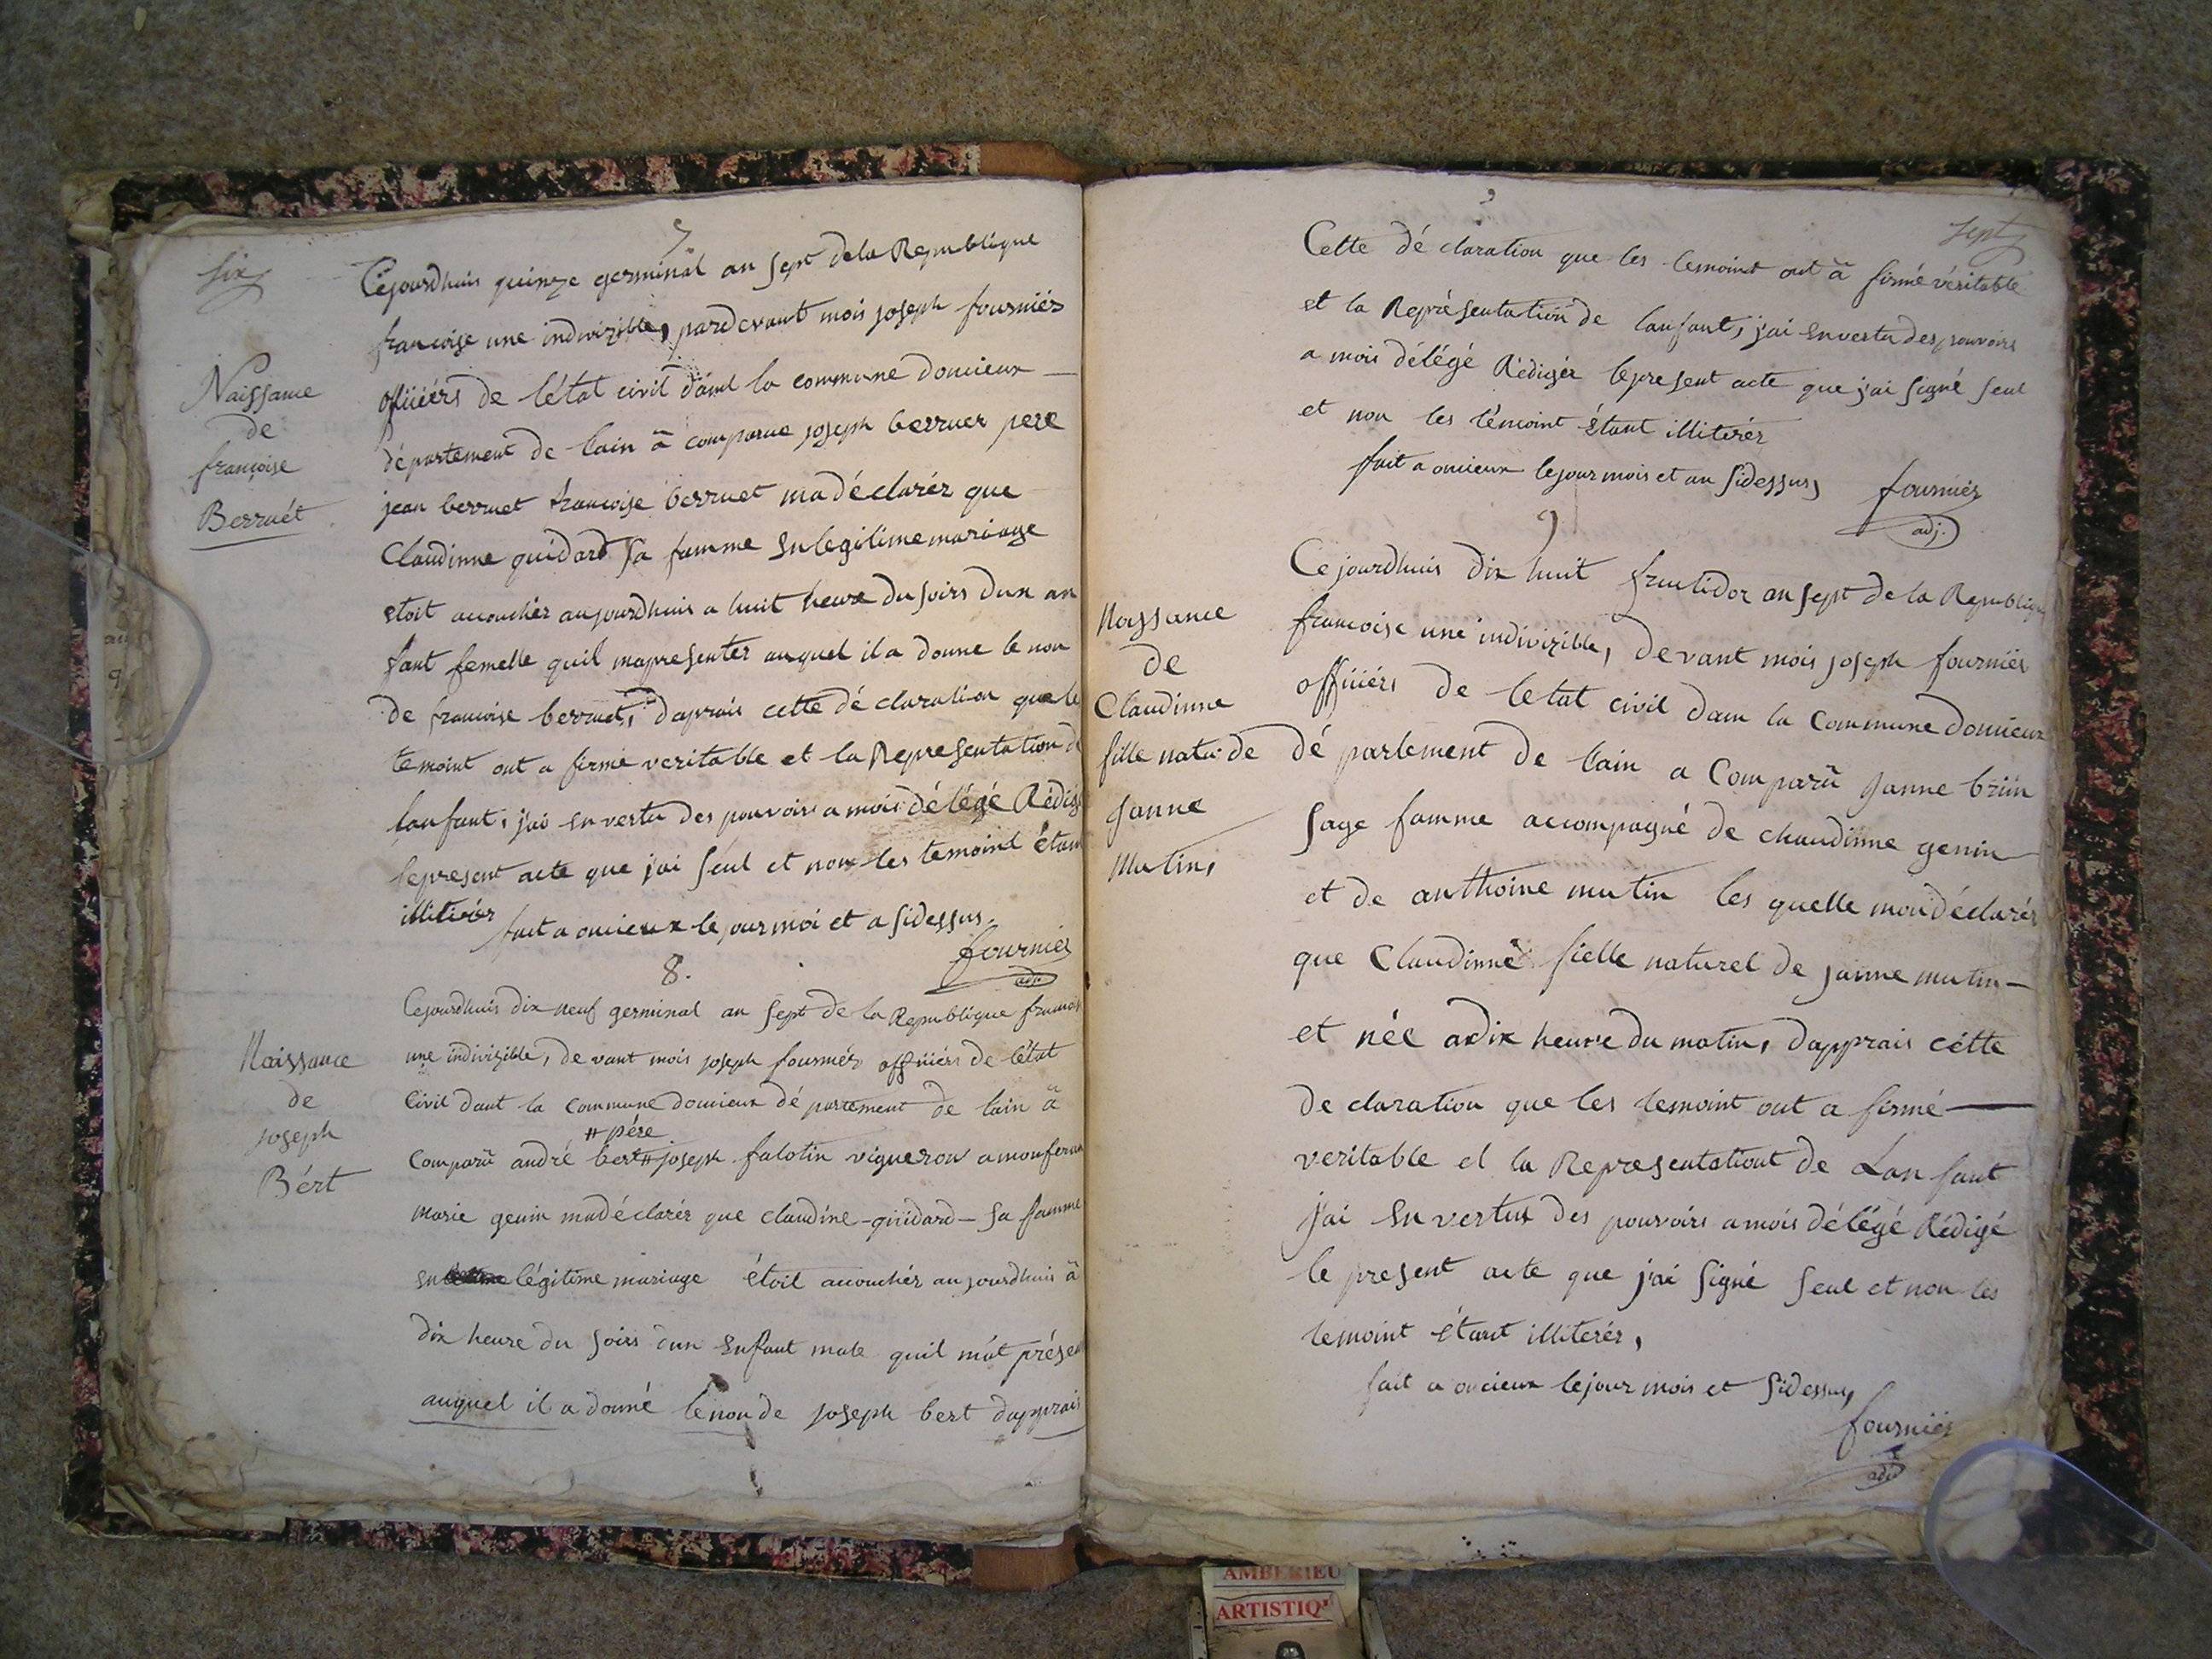 six
7.
Cejourdhuis quinze germinal an sept dela Republique
francoise une indivizible, pardevant mois joseph fourniér
officiérs de létat civil dant la commune doncieux
département de lain à comparue joseph berruer pere
jean berruet francoise berruet ma déclarér que
Claudinne guidard sa famme en legitime mariage
etoit accouchér aujourdhuis a huit heure du soirs dun an
fant femelle quil mapresenter auquel il a donne le non
de francoise berruet, daprais cette déclaration que le
temoint ont a firmé veritable et la Representation de
lanfant, jai en vertu des pouvoir a mois délégé Rédigé
lepresent acte que jai seul et non les temoint étant
illitirér
fait a oncieux le jour moi et a sidessus,
fournier
adj.
Naissance
de
françoise
Berruét
8.
Cejourdhuis dix neuf germinal an sept de la Republique francois
une indivizible, devant mois joseph fourniér officiérs de létat
Civil dant la commune doncieux département de lain à
# pére
Comparu andré bert # joseph falotin vigneron a monferan
marie genin madéclarér que claudine - guidard - sa famme
en légitime mariage étoit accouchér aujourdhuis à
dix heure du soirs dun enfant male quil mat présen
auquel il a donné le non de joseph bert dapprais
Naissance
de
joseph
Bért
sept
Cette déclaration que les temoint ont à firmé véritable
et la Représentation de lanfant, j'ai envertu des pouvoirs
a mois délégé Rédigér lepresent acte que j'ai signé seul
et non les témoint étant illiterér
fait a oncieux lejour mois et an sidessus,
fourniér
adj.
9
Ce jourdhuis dix huit fructidor an sept de la Republique
francoise une indivizible, devant mois joseph fourniér
officiérs de letat civil dam la Commune doncieux
département de lain a Comparu Janne brun
sage famme accompagné de claudinne genin
et de anthoine mutin les quelle mon déclarér
que Claudinne fielle naturel de janne mutin -
et née adix heure du matin, dapprais cétte
de claration que les temoint ont a firmé
veritable et la Representationt de Lanfant
j'ai en vertux des pouvoirs a mois délégé Rédigé
le present acte que j'ai signé seul et non les
temoint étant illiterér,
fait a oncieux lejour mois et sidessus,
fourniér
adj
Naissance
de
Claudinne
fille natu de
Janne
Mutin,
AMBERIEU
ARTISTIQ